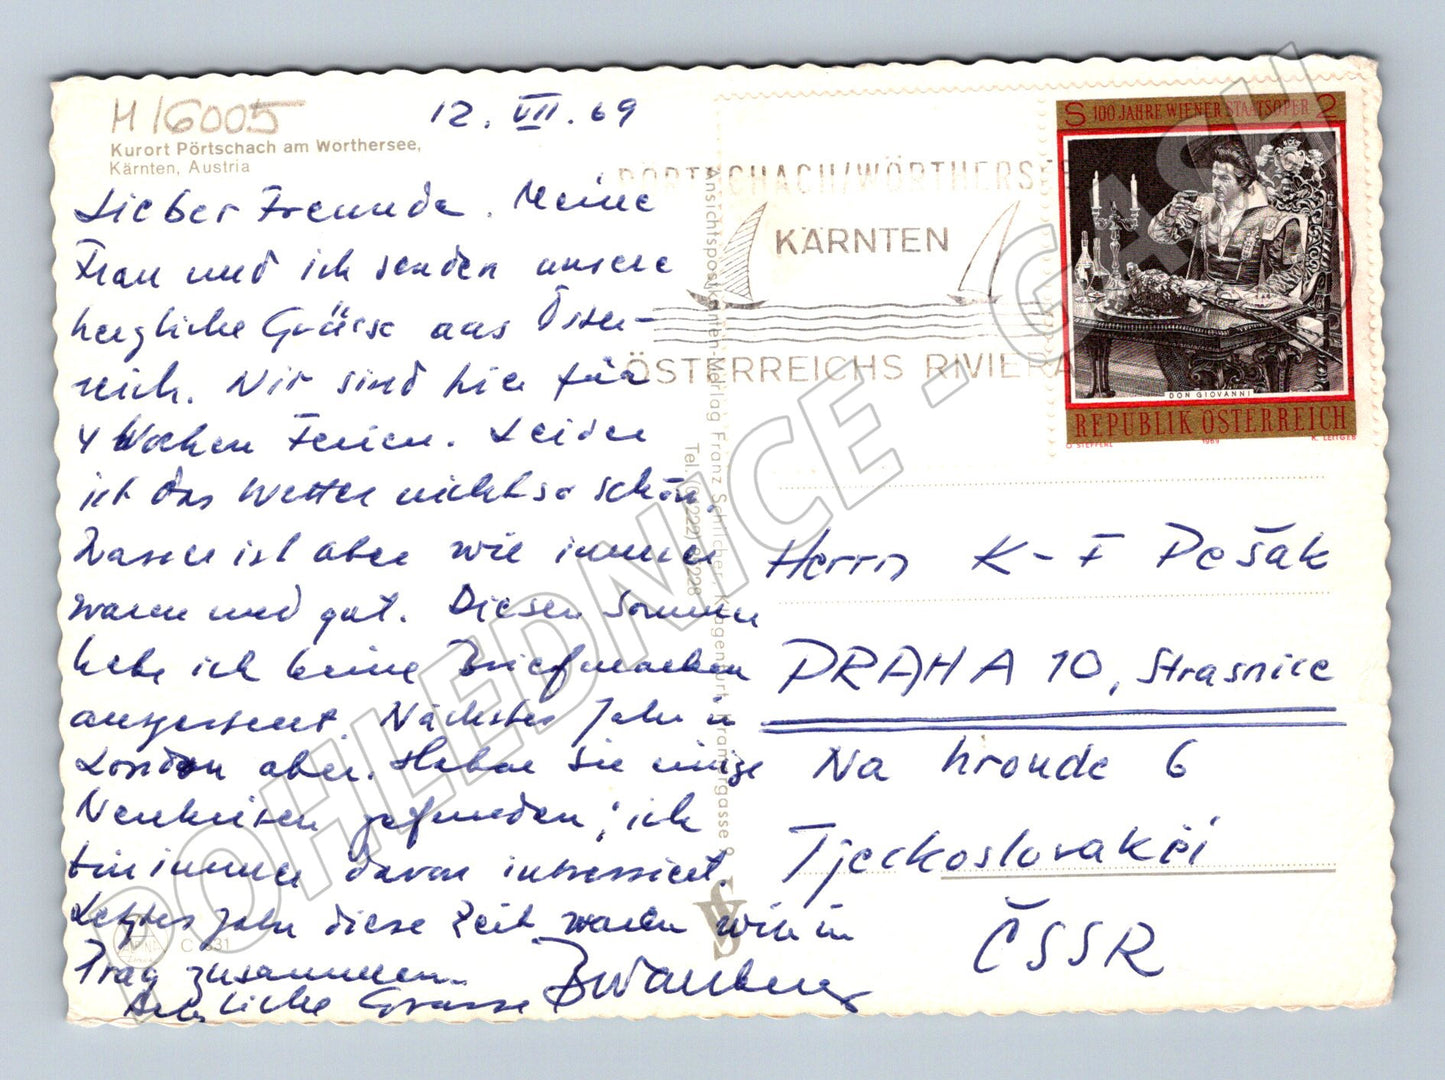 M 16005
12. VII. 69
Kurort Pörtschach am Worthersee,
Kärnten, Austria
Lieber Freunde. Meine
Frau und ich senden unsere
herzliche Grüsse aus Öster-
reich. Wir sind hier für
4 Wochen Ferien. Leider
ist das Wetter nicht so schön,
Wasser ist aber wie immer
warm und gut. Diesen Sommer
habe ich keine Briefmarken
ausgestellt. Nächstes Jahr in
London aber. Haben Sie einige
Neuheiten gefunden; ich
bin immer davon interessiert.
Letztes Jahr diese Zeit waren wir in
Prag zusammen.
Herzliche Grüsse
C 831
Ansichtspostkarten-Verlag Franz Schilcher, Klagenfurt,
Tel. (0 42 22)
PÖRTSCHACH/WÖRTHERSEE
KÄRNTEN
ÖSTERREICHS RIVIERA
S 100 JAHRE WIENER STAATSOPER 2
DON GIOVANNI
REPUBLIK ÖSTERREICH
O. STEFFERL 1969 R. LEITGEB
Herrn K-F Pešák
PRAHA 10, Strasnice
Na hroude 6
Tjeckoslovakëi
ČSSR
POHLEDNICE - GASH